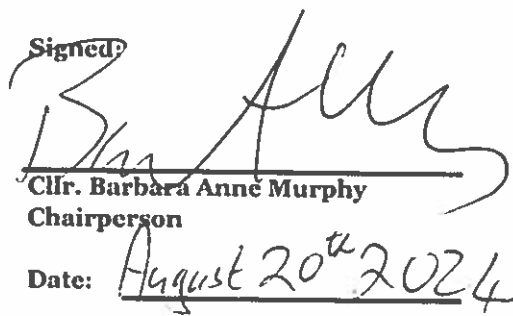 Signed:
Cllr. Barbara Anne Murphy
Chairperson
Date: August 20th 2024